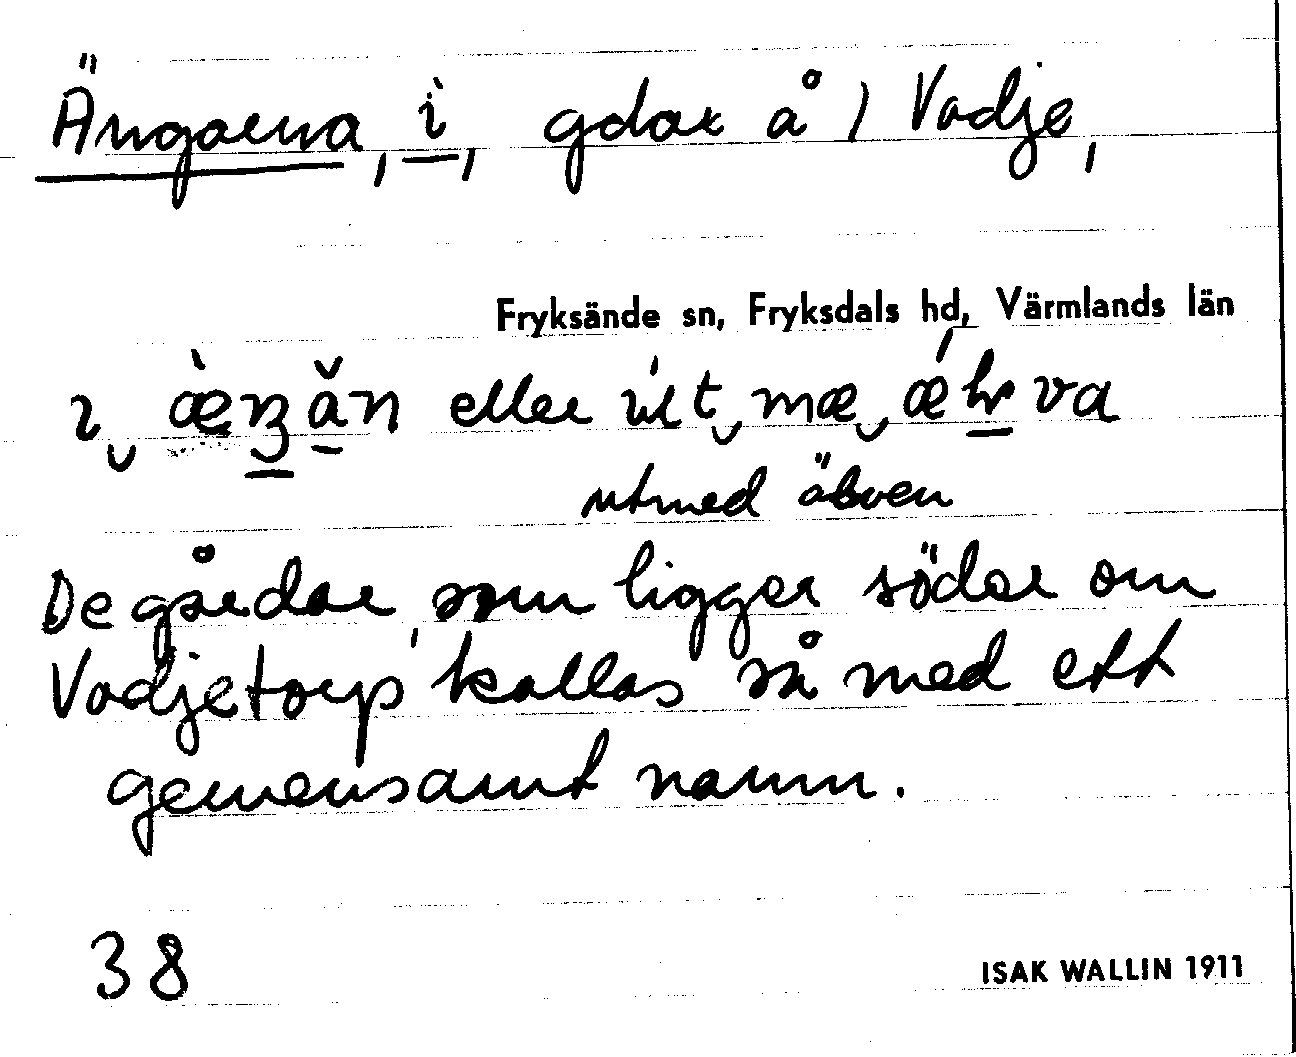 Ängarna, i, gdar å 1 Vadje,
Fryksände sn, Fryksdals hd, Värmlands län
eller
utmed älven
De gårdar, som ligger söder om
Vadjetorp kallas så med ett
gemensamt namn.
38
ISAK WALLIN 1911